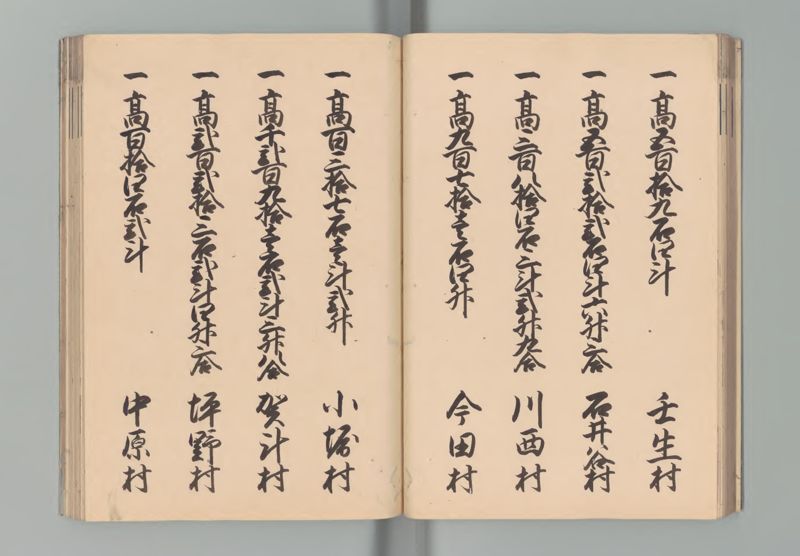 一高五百拾九石四斗 壬生村
一高五百弐拾弐石四斗六升三合 石井谷村
一高三百八拾四石三斗弐升九合 川西村
一高九百七拾壱石四升 今田村
一高百三拾七石壱斗弐升 小堀村
一高千弐百九拾壱石弐斗三升八合 賀斗村
一高弐百弐拾三石弐斗四升六合 坪野村
一高百拾四石弐斗 中原村